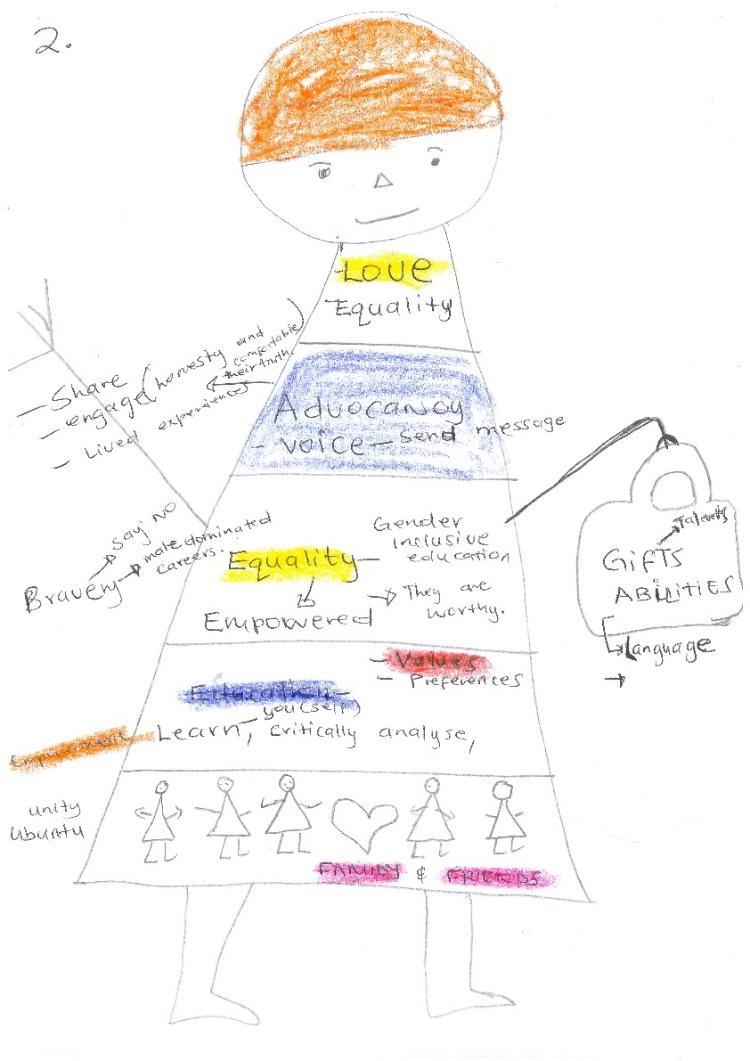 2.
- Love
Equality
- Share
- engage (honesty and
comfortable
their truth.)
- Lived experiences
Advocancy
- voice - send message
Bravery
say NO
male dominated
careers.
Equality -
Gender
inclusive
education
Empowered
They are
worthy.
Talents
GIFTS
ABILITIES
language
- Values
- Preferences
Education -
you(self)
Learn, critically analyse,
unity
Ubuntu
FAMILY & FRIENDS